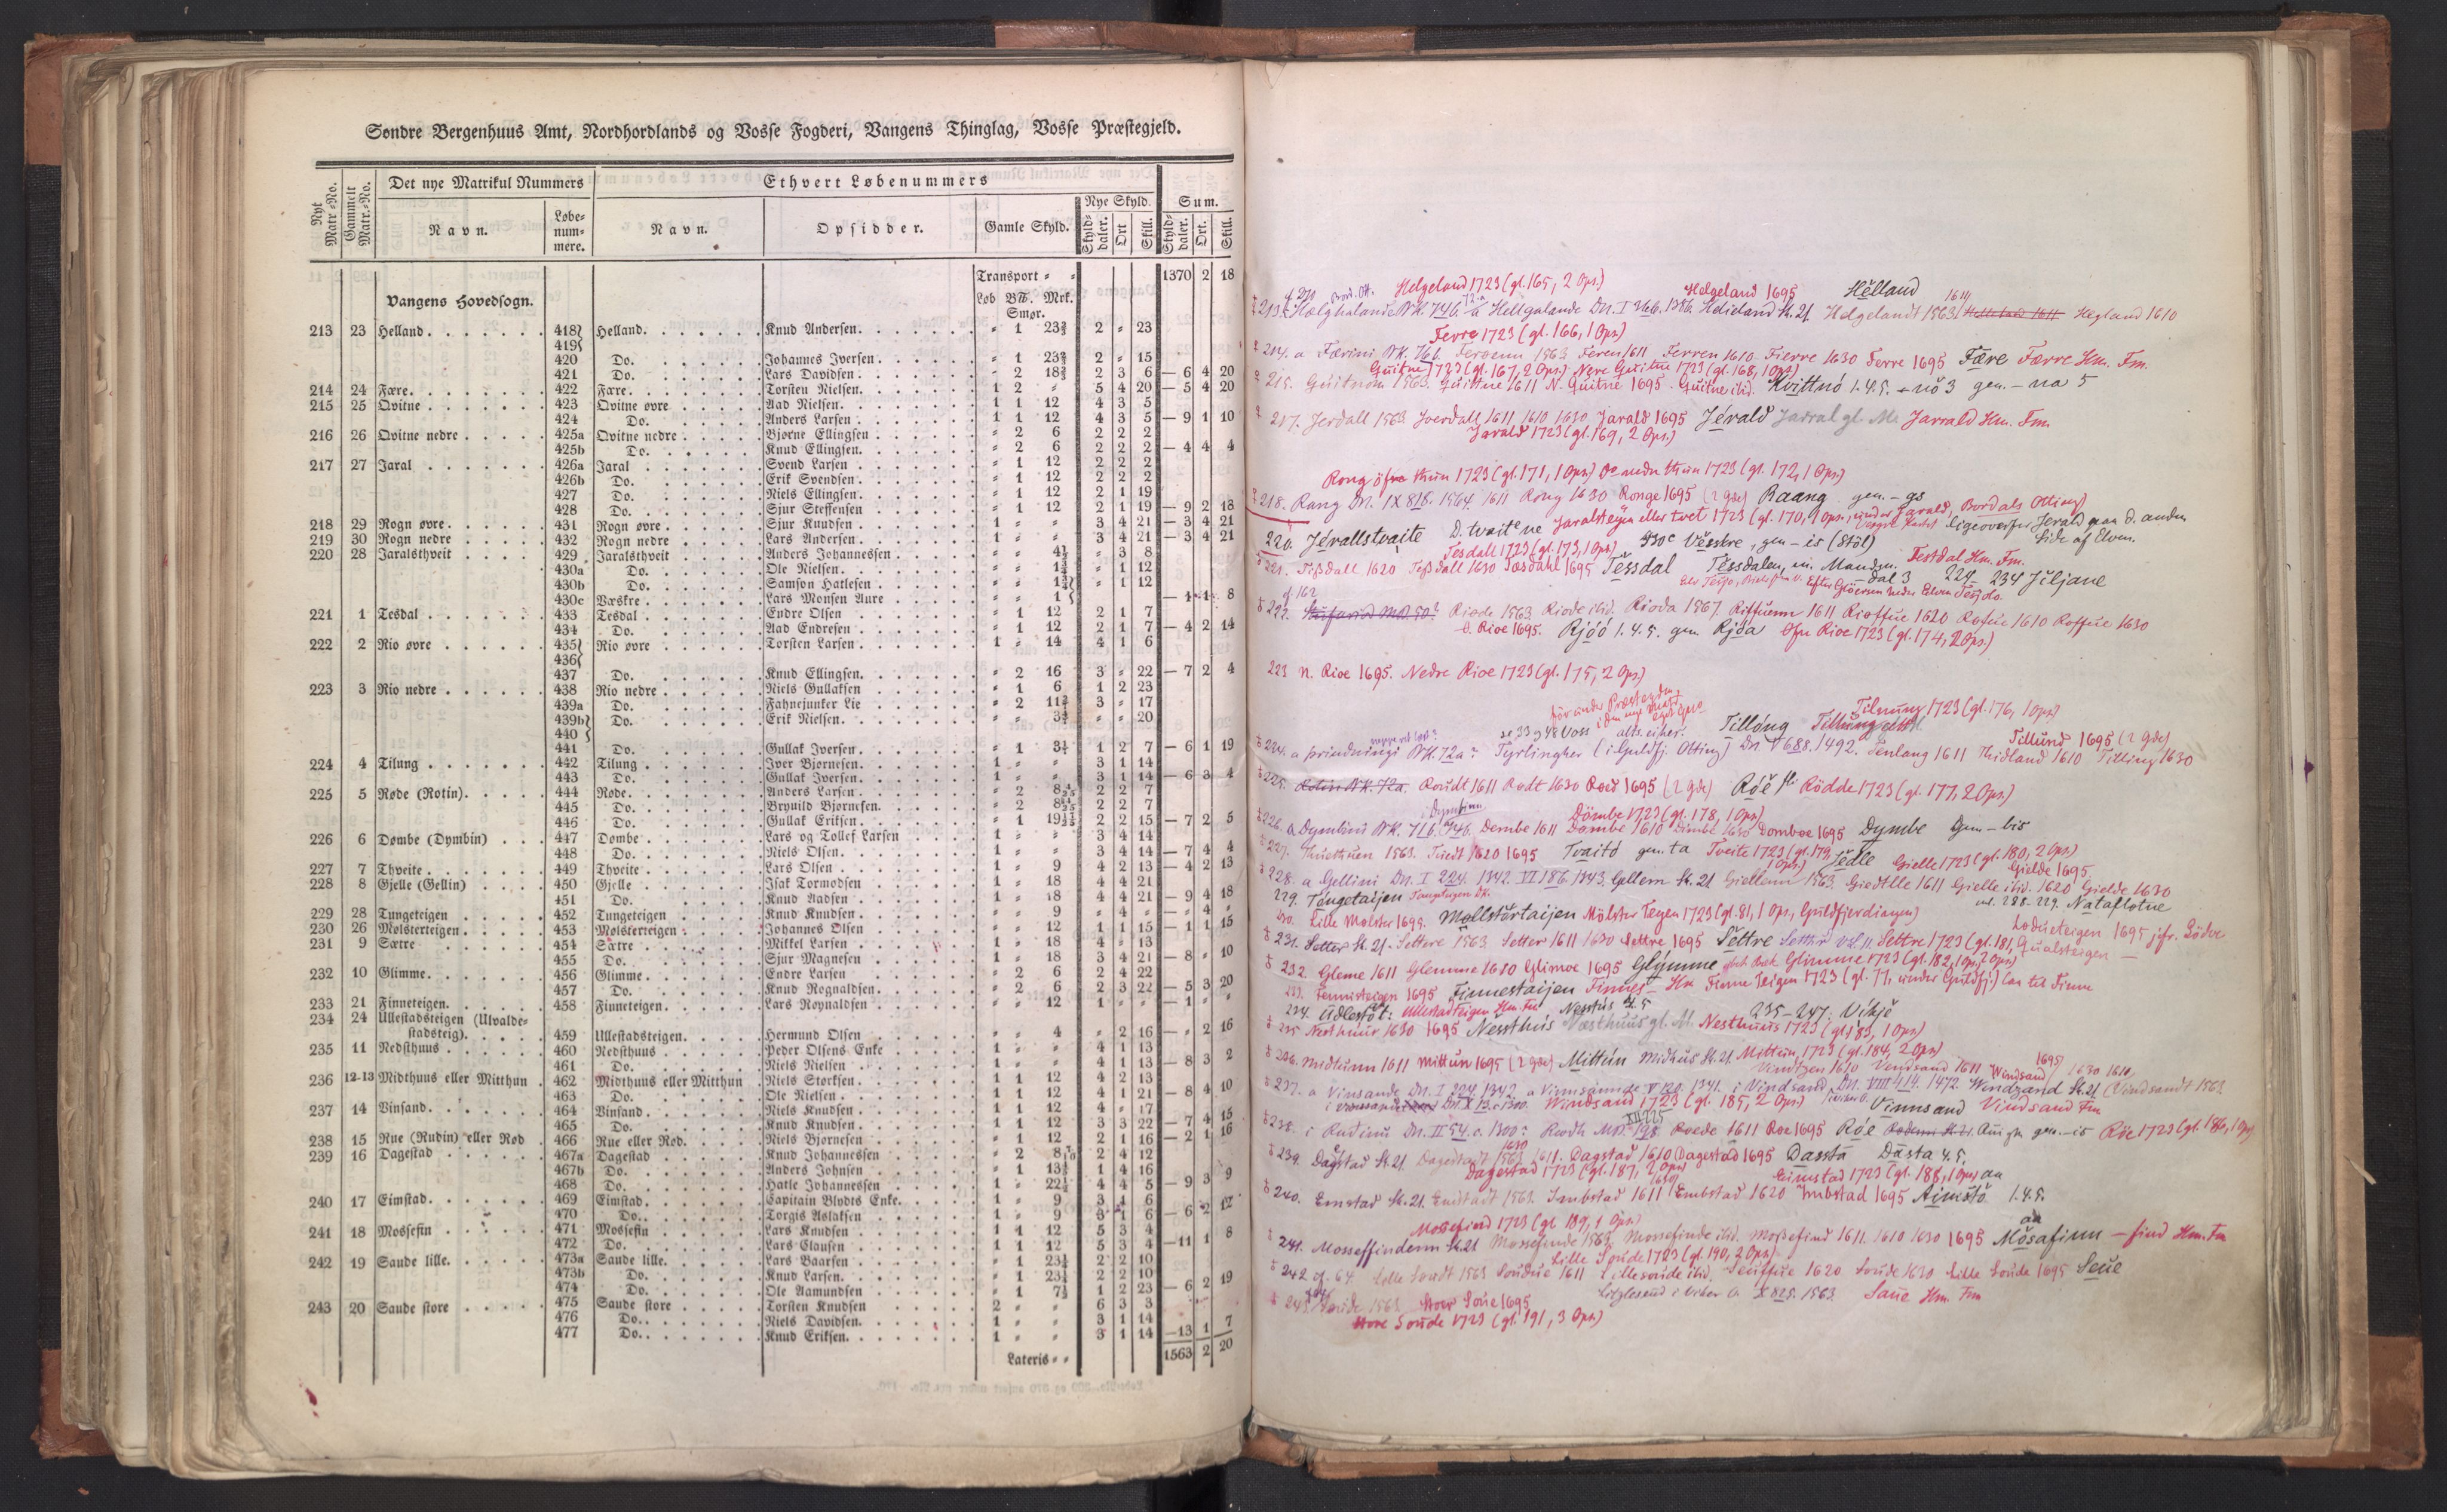 Søndre Bergenhuus Amt, Nordhordlands og Vosse Fogderi, Vangens Thinglag, Vosse Præstegjeld.
Nyt Matr.-No. Gammelt Matr.-No. Det nye Matrikul Nummers Ethvert Løbenummers
Navn. Løbenummere. Navn. Opsidder. Gamle Skyld. Nye Skyld. Sum.
Skylddaler. Ort Skill. Skylddaler. Ort. Skill.
Transport 1370 2 18
Vangens Hovedsogn. Løb Mrk. Smør.
213 23 Helland 418 Helland Knud Andersen 1 23 2 23
419
420 Do. Johannes Iversen 1 23 2 15
421 Do. Lars Davidsen 2 18 2 3 6 — 6 4 20
214 24 Fære 422 Fære Torsten Nielsen 1 2 5 4 20 — 5 4 20
215 25 Qvitne 423 Qvitne øvre Aad Nielsen 1 1 12 4 3 5
424 Do. Anders Larsen 1 1 12 4 3 5 — 9 1 10
216 26 Qvitne nedre 425a Qvitne nedre Bjørne Ellingsen 2 6 2 2 2
425b Do. Knud Ellingsen 2 6 2 2 2 — 4 4 4
217 27 Jaral 426a Jaral Svend Larsen 1 12 2 2 2
426b Do. Erik Svendsen 1 12 2 2 2
427 Do. Niels Ellingsen 1 12 2 1 19
428 Do. Sjur Steffensen 1 12 2 1 19 — 9 2 18
218 29 Rogn øvre 431 Rogn øvre Sjur Knudsen 1 3 4 21 — 3 4 21
219 30 Rogn nedre 432 Rogn nedre Lars Andersen 1 3 4 21 — 3 4 21
220 28 Jaralsthveit 429 Jaralsthveit Anders Johannessen 4½ 3 8
430a Do. Ole Nielsen 1 12
430b Do. Samson Hatlesen 1 12
430c Væskre Lars Monsen Aure 1 — 1 1 8
221 1 Tesdal 433 Tesdal Endre Olsen 1 12 2 1 7
434 Do. Aad Endresen 1 12 2 1 7 — 4 2 14
222 2 Rio øvre 435 Rio øvre Torsten Larsen 1 14 4 1 6
436
437 Do. Knud Ellingsen 2 16 3 22 — 7 2 4
223 3 Rio nedre 438 Rio nedre Niels Gullaksen 1 6 1 2 23
439a Do. Fahnejunker Lie 2 11 3 17
439b Do. Erik Nielsen 3 20
440
441 Do. Gullak Iversen 1 3 1 2 7 — 6 1 19
224 4 Tilung 442 Tilung Iver Bjørnesen 1 3 1 14
443 Do. Gullak Iversen 1 3 1 14 — 6 3 4
225 5 Røde (Rotin) 444 Røde Anders Larsen 2 8 2 2 7
445 Do. Brynild Bjørnesen 2 8 2 2 7
446 Do. Gullak Eriksen 1 19 2 2 15 — 7 2 5
226 6 Dømbe (Dymbin) 447 Dømbe Lars og Tollef Larsen 1 3 4 14
448 Do. Niels Olsen 1 3 4 14 — 7 4 4
227 7 Thveite 449 Thveite Lars Olsen 1 9 4 2 13 — 4 2 13
228 8 Gjelle (Gellin) 450 Gjelle Isak Tormodsen 1 18 4 4 21
451 Do. Knud Aadsen 1 18 4 4 21 — 9 4 18
229 28 Tungeteigen 452 Tungeteigen Knud Knudsen 9 4 — 4
230 26 Mølsterteigen 453 Mølsterteigen Johannes Olsen 12 1 1 15 — 1 1 15
231 9 Sætre 454 Sætre Mikkel Larsen 1 18 4 13
455 Do. Sjur Magnesen 1 18 3 4 21 — 8 10
232 10 Glimme 456 Glimme Endre Larsen 2 6 2 4 22
457 Do. Knud Rognaldsen 2 6 2 3 22 — 5 3 20
233 21 Finneteigen 458 Finneteigen Lars Roynaldsen 12 1 — 1
234 24 Ullestadsteigen (Ulvaldestadsteig) 459 Ullestadsteigen Hermund Olsen 4 2 16 — 2 16
235 11 Nedsthuus 460 Nedsthuus Peder Olsens Enke 1 4 1 13
461 Do. Niels Nielsen 1 4 1 13 — 8 3 2
236 12-13 Midthuus eller Mitthun 462 Midthuus eller Mitthun Niels Storksen 1 1 12 4 2 13
463 Do. Ole Nielsen 1 1 12 4 1 21 — 8 4 10
237 14 Vinsand 464 Vinsand Niels Knudsen 1 1 12 4 17
465 Do. Knud Knudsen 1 1 12 3 3 22 — 7 4 15
238 15 Rue (Rudin) eller Rød 466 Rue eller Rød Niels Bjørnesen 1 12 2 1 16 — 2 1 16
239 16 Dagestad 467a Dagestad Knud Johannessen 2 8 2 4 12
467b Do. Anders Johnsen 1 13 1 4 16
468 Do. Hatle Johannessen 1 22½ 4 4 5 — 9 3 9
240 17 Eimstad 469 Eimstad Capitain Blydts Enke 1 9 3 1 6
470 Do. Torgis Aslaksen 1 9 3 1 6 — 6 2 12
241 18 Mossefin 471 Mossefin Lars Knudsen 1 1 12 5 3 4
472 Do. Lars Clausen 1 1 12 5 3 4 — 11 1 8
242 19 Saude lille 473a Saude lille Lars Baarsen 1 23 2 2 10
473b Do. Knud Larsen 1 23 2 2 10
474 Do. Ole Aamundsen 1 7½ 1 2 23 — 6 2 19
243 20 Saude store 475 Saude store Torsten Knudsen 2 6 3 3
476 Do. Niels Davidsen 1 3 1 14
477 Do. Knud Eriksen 1 3 1 14 — 13 1 7
Lateris 1563 2 20
Helgeland 1723 (gl. 165, 2 Ops.) Helgeland 1695 Hĕlland
213. Hælghalande BK. 746. a Hellgalande Dn. I 366. 1386. Helieland St. 21. Helgelandt 1563 Hegland 1610
Ferre 1723 (gl. 166, 1 Ops)
214. a Færini BK. 766. Feroenn 1563 Feren 1611 Ferren 1610 Fierre 1630 Ferre 1695 Fære Færre Hm. Fm.
Guitne 1723 (gl. 167, 2 Ops.) Nere Guitne 1723 (gl. 168, 1 Ops)
215. Guitnom 1563. Guittne 1611 N. Guitne 1695. Guitne ibid. Kvittnó 1.4.5. – nŏ 3 gen. – na 5
217. Jerdall 1563 Joerdall 1611 1610 1630 Jarald 1695 Jérald Jarral gl. M. Jarrald Hm. Fm.
Jarald 1723 (gl. 169, 2 Ops.)
Rong öfre thun 1723 (gl. 171, 1 Ops.) Do nedre thun 1723 (gl. 172, 1 Ops.)
218. Rang Dn. IX 818. 1564. 1611 Rong 1630 Ronge 1695 (2 gde) Raang gen. – gs
220. Jérallstvaite D. tvaitene Jaralsteyen eller tvet 1723 (gl. 170, 1 Ops., under Jarald, Bordals Otting)
ligeoverfor Jerald paa d. anden Side af Elven.
430c Vĕsskre, gen – is (Støl)
Tesdall 1723 (gl. 173, 1 Ops)
221. Tessdall 1620 Tessdall 1630 Tæsdahl 1695 Tĕssdal Tĕssdalen, in. Manden. Testdal Hm. Fm.
– dal 3 224 – 234 Jiljane
222. Riode 1563 Riode ibid. Rioda 1567. Riffuenn 1611 Rioffue 1620 Rofue 1610 Roffue 1630
O. Rioe 1695. Rjóó 1.4.5. gen. Rjóa Ofre Rioe 1723 (gl. 174, 2 Ops.)
223 N. Rioe 1695. Nedre Rioe 1723 (gl. 175, 2 Ops.)
Tilnung 1723 (gl. 176, 1 Ops)
Tillóng Tillund 1695 (2 gde)
224. a þrindningi BK. 72a? Tyrlingher (i Guldfj. Otting) Dn. V 688. 1492. Tenlang 1611 Thidland 1610 Tilling 1630
225. Rotin BK. 72a. Roudt 1611 Rødt 1630 Roed 1695 (2 gde) Róĕ Rödde 1723 (gl. 177, 2 Ops.)
Dömbe 1723 (gl. 178, 1 Ops)
226. a Dymbini BK. 716. 746. Dembe 1611 Dombe 1610 Dimbe 1630 Domboe 1695 Dymbe Gen – bis
227. Thuethuen 1563. Tuedt 1620 1695 Tvaitó gen. ta Tveite 1723 (gl. 179, 1 Ops.) Jĕdle Gielle 1723 (gl. 180, 2 Ops)
228. a Gellini Dn. I 224. 1342. VI 186. 1343. Gellem St. 21 Giellenn 1563. Giedtlle 1611 Gielle ibid. 1620 Gielde 1630 Gielde 1695.
229. Tóngetaijen ml. 228–229. Nataflotne
230. Lille Molster 1695. Mollstŏrtaijen Mölster Teyen 1723 (gl. 81, 1 Ops., Guldfjerdingen) Lodueteigen 1695 jfr. Lödve
231. Setter St. 21. Settere 1563 Setter 1611 1630 Settre 1695 Sĕttre Settre 1723 (gl. 181, 2 Ops) Qualsteigen
232. Gleme 1611 Glemme 1610 Glimoe 1695 Glýmme Glimme 1723 (gl. 182, 1 Ops)
233. Fennisteigen 1695 Finnestaijen Finnes – Hm Finne Teigen 1723 (gl. 71, under Guldfj.) Lan til Finne
234. Udlestŏt: Ullestad Teigen Hm. Fm. Nesstús 4.5 235–247: Víkjĕ
235 Nesthuur 1630 1695 Nessthús Næsthuus gl. M. Nesthuus 1723 (gl. 183, 1 Ops)
236. Midtunn 1611 Mittun 1695 (2 gde) Mittún Midhus St. 21 Mittun 1723 (gl. 184, 2 Ops)
Vindtzen 1610 Vendsand 1611 Windsand 1695 1630 1610
237. a Vinsande Dn. I 224. 1342. a Vinnsannde V 120. 1341. i Vindsand Dn. VIII 414. 1472. Windzand St. 21 (Vindsandt 1563
Windsand 1723 (gl. 185, 2 Ops) Vinnsand Vindsand Fm
238. i Rudinu Dn. II 54. c. 1300? Roedh Roede 1611 Roe 1695 Róe gen. – is Röe 1723 (gl. 186, 1 Ops)
239. Dagstad St. 21. Dagestadt 1563 1611. Dagstad 1610 Dagestad 1695 Dasstă Dăsta 4.5.
Dagestad 1723 (gl. 187, 2 Ops) Eimstad 1723 (gl. 188, 1 Ops)
240. Emstad St. 21. Emstadt 1563. Imbstad 1611 Embstad 1620 Imbstad 1695 Aimstŏ 1.4.5.
Mossefind 1723 (gl. 189, 1 Ops.)
241. Mosseffindenn St. 21 Mossefinde 1563 Mossefinde ibid. Mossefind 1611. 1610 1630 1695 Mŏsafinn – find Hm. Fm
Lille Soude 1723 (gl. 190, 2 Ops.)
242 cf. 64. Lille Soudt 1563 Soudue 1611 Lillesoude ibid. Seuffue 1620 Soude 1630 Lille Soude 1695 Seúe
Litzlesaud i Urber O. X 825. 1563. Saue Hm. Fm
243. Soude 1563 Stoer Soue 1695
Store Soude 1723 (gl. 191, 3 Ops.)